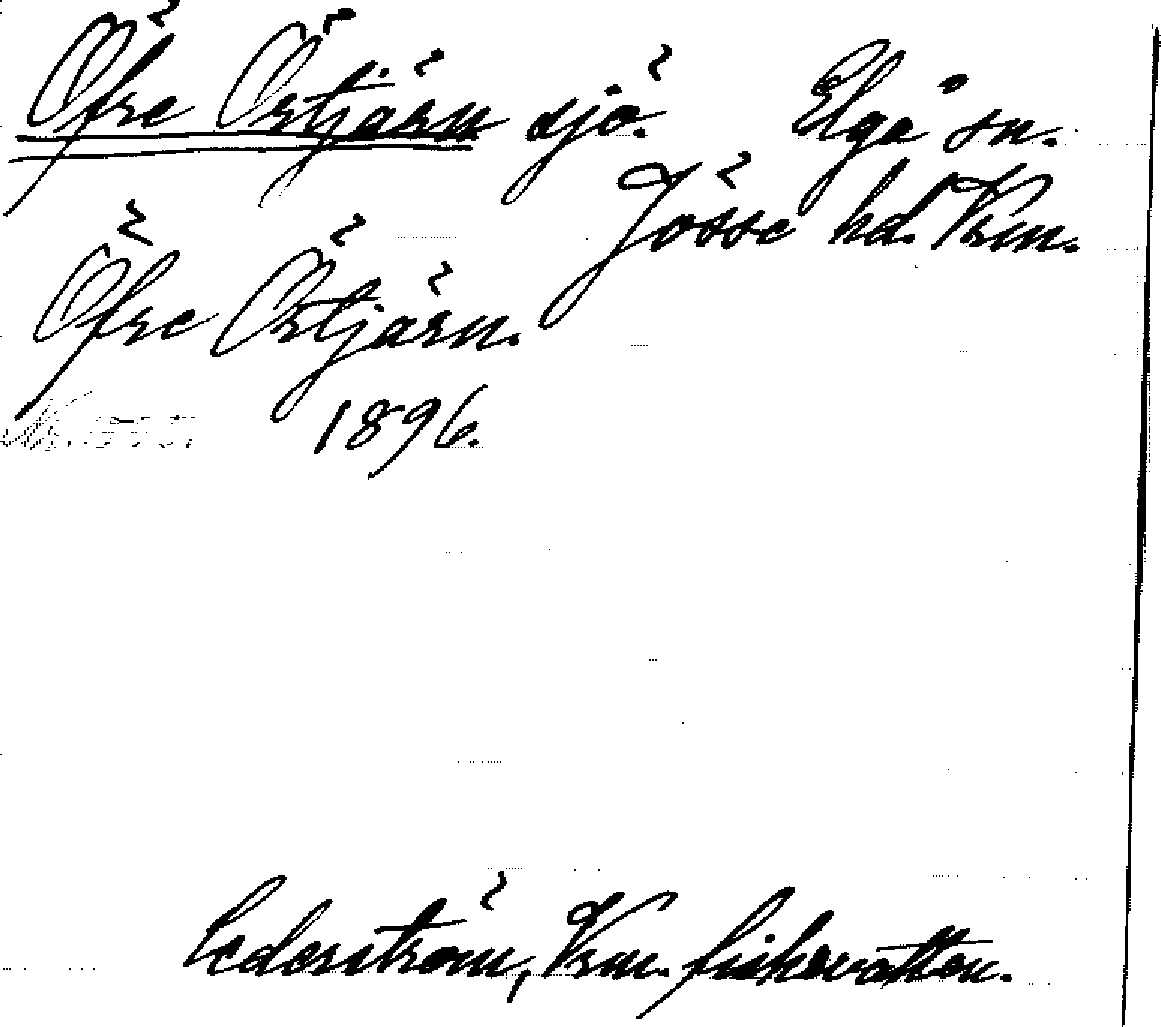 Öfre Örtjärn sjö. Elgå sn.
Jösse hd. Vrm.
Öfre Örtjärn.
1896.
Cederström, Vrm. fiskevatten.